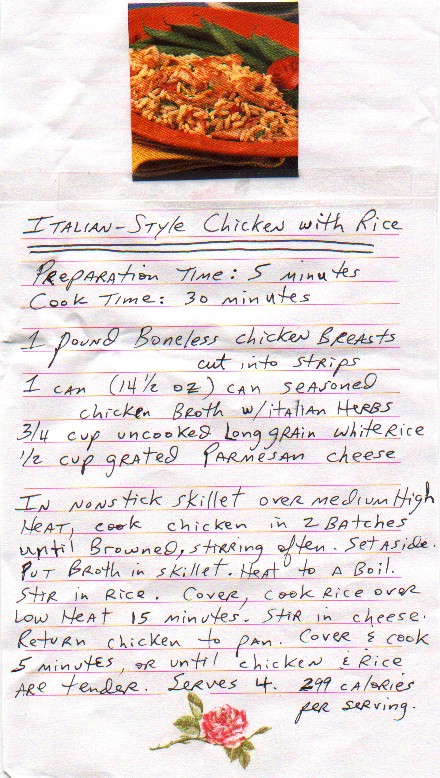 Italian-Style Chicken with Rice
Preparation Time: 5 minutes
Cook Time: 30 minutes
1 pound Boneless chicken Breasts
cut into strips
1 can (14½ oz) can seasoned
chicken Broth w/italian Herbs
3/4 cup uncooked Long grain white Rice
½ cup grated Parmesan cheese
In nonstick skillet over medium High
Heat, cook chicken in 2 Batches
until Browned, stirring often. Set aside.
Put Broth in skillet. Heat to a Boil.
Stir in Rice. Cover, cook Rice over
Low Heat 15 minutes. Stir in cheese.
Return chicken to pan. Cover & cook
5 minutes, or until chicken & Rice
are tender. Serves 4. 299 calories
per serving.